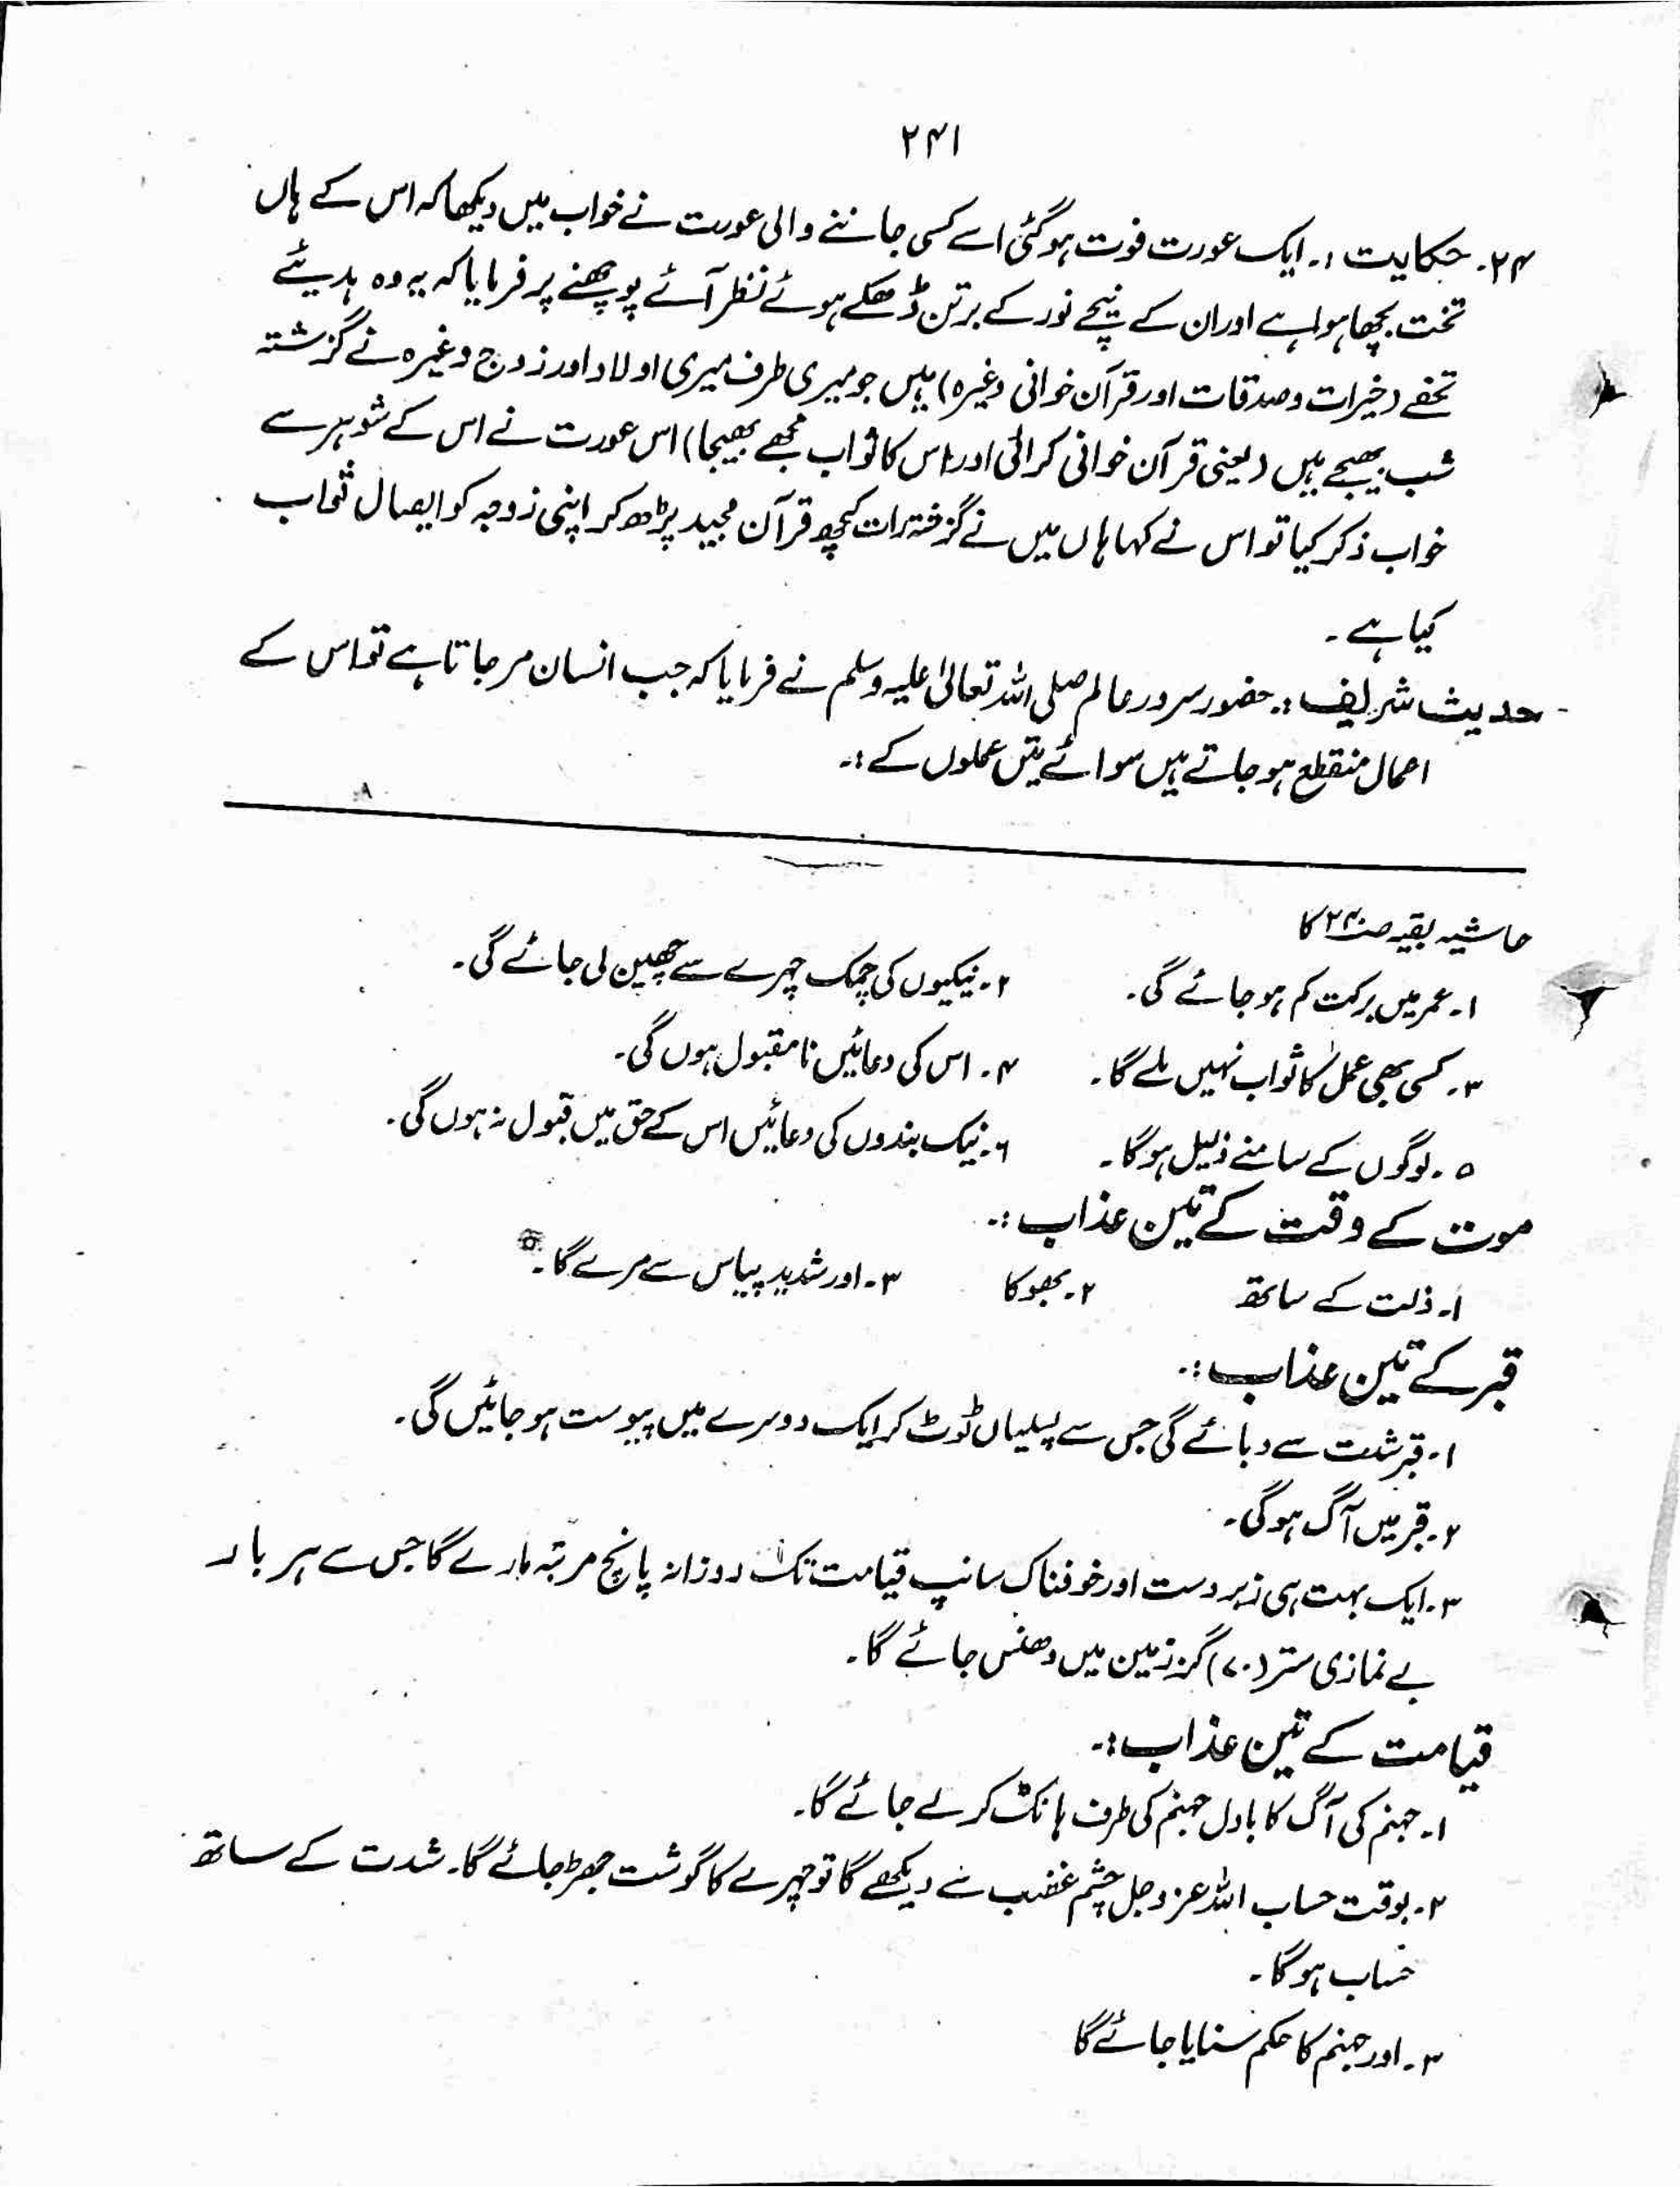 ۲۴۱
۲۴۔ حکایت :۔ ایک عورت فوت ہوگئی اسے کسی جاننے والی عورت نے خواب میں دیکھا کہ اس کے ہاں
تخت بچھا ہوا ہے اور ان کے نیچے نور کے برتن ڈھکے ہوئے نظر آئے پوچھنے پر فرمایا کہ یہ وہ ہدیئے
تحفے (خیرات و صدقات اور قرآن خوانی وغیرہ) ہیں جو میری طرف میری اولاد اور زوج وغیرہ نے گزشتہ
شب بھیجے ہیں (یعنی قرآن خوانی کرائی اور اس کا ثواب مجھے بھیجا) اس عورت نے اس کے شوہر سے
خواب ذکر کیا تو اس نے کہا ہاں میں نے گزشتہ رات کچھ قرآن مجید پڑھ کر اپنی زوجہ کو ایصال ثواب
کیا ہے ۔
حدیث شریف :۔ حضور سرور عالم صلی اللہ تعالیٰ علیہ وسلم نے فرمایا کہ جب انسان مر جاتا ہے تو اس کے
اعمال منقطع ہو جاتے ہیں سوائے تین عملوں کے :۔
حاشیہ بقیہ صـ۲۴۰ کا
۱۔ عمر میں برکت کم ہو جائے گی۔ ۲۔ نیکیوں کی چمک چہرے سے چھین لی جائے گی۔
۳۔ کسی بھی عمل کا ثواب نہیں ملے گا۔ ۴۔ اس کی دعائیں نا مقبول ہوں گی۔
۵۔ لوگوں کے سامنے ذلیل ہوگا۔ ۶۔ نیک بندوں کی دعائیں اس کے حق میں قبول نہ ہوں گی۔
موت کے وقت کے تین عذاب :۔
۱۔ ذلت کے ساتھ ۲۔ بھوکا ۳۔ اور شدید پیاس سے مرے گا۔
قبر کے تین عذاب :۔
۱۔ قبر شدت سے دبائے گی جس سے پسلیاں ٹوٹ کر ایک دوسرے میں پیوست ہو جائیں گی۔
۲۔ قبر میں آگ ہوگی۔
۳۔ ایک بہت ہی زبردست اور خوفناک سانپ قیامت تک روزانہ پانچ مرتبہ مارے گا جس سے ہر بار
بے نمازی ستر (۷۰) گز زمین میں دھنس جائے گا۔
قیامت کے تین عذاب :۔
۱۔ جہنم کی آگ کا بادل جہنم کی طرف ہانک کر لے جائے گا۔
۲۔ بوقت حساب اللہ عزوجل چشم غضب سے دیکھے گا تو چہرے کا گوشت جھڑ جائے گا۔ شدت کے ساتھ
حساب ہوگا۔
۳۔ اور جہنم کا حکم سنایا جائے گا